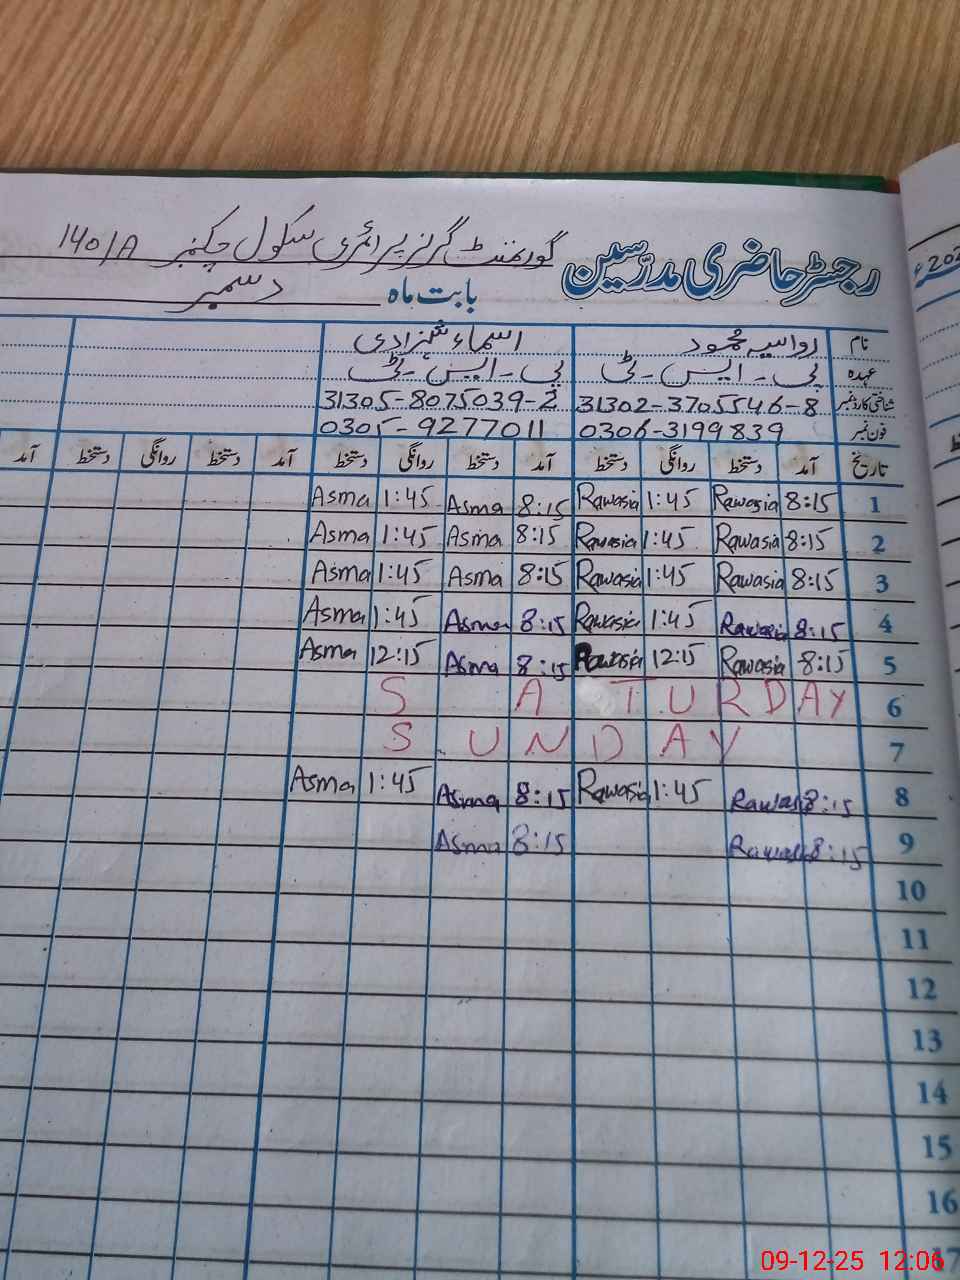 رجسٹر حاضری مدرسین گورنمنٹ گرلز پرائمری سکول چکنمبر 140/A
بابت ماہ دسمبر
نام رواسیہ محمود اسماء شہزادی
عہدہ پی-ایس-ٹی پی-ایس-ٹی
شناختی کارڈ نمبر 31302-3705546-8 31305-8075039-2
فون نمبر 0306-3199839 0305-9277011
تاریخ آمد دستخط روانگی دستخط آمد دستخط روانگی دستخط آمد دستخط روانگی دستخط آمد
1 8:15 Rawasia 1:45 Rawasia 8:15 Asma 1:45 Asma
2 8:15 Rawasia 1:45 Rawasia 8:15 Asma 1:45 Asma
3 8:15 Rawasia 1:45 Rawasia 8:15 Asma 1:45 Asma
4 8:15 Rawasia 1:45 Rawasia 8:15 Asma 1:45 Asma
5 8:15 Rawasia 12:15 Rawasia 8:15 Asma 12:15 Asma
6 SATURDAY
7 SUNDAY
8 8:15 Rawas 1:45 Rawasia 8:15 Asma 1:45 Asma
9 8:15 Rawas 8:15 Asma
10
11
12
13
14
15
16
17
202
09-12-25 12:06